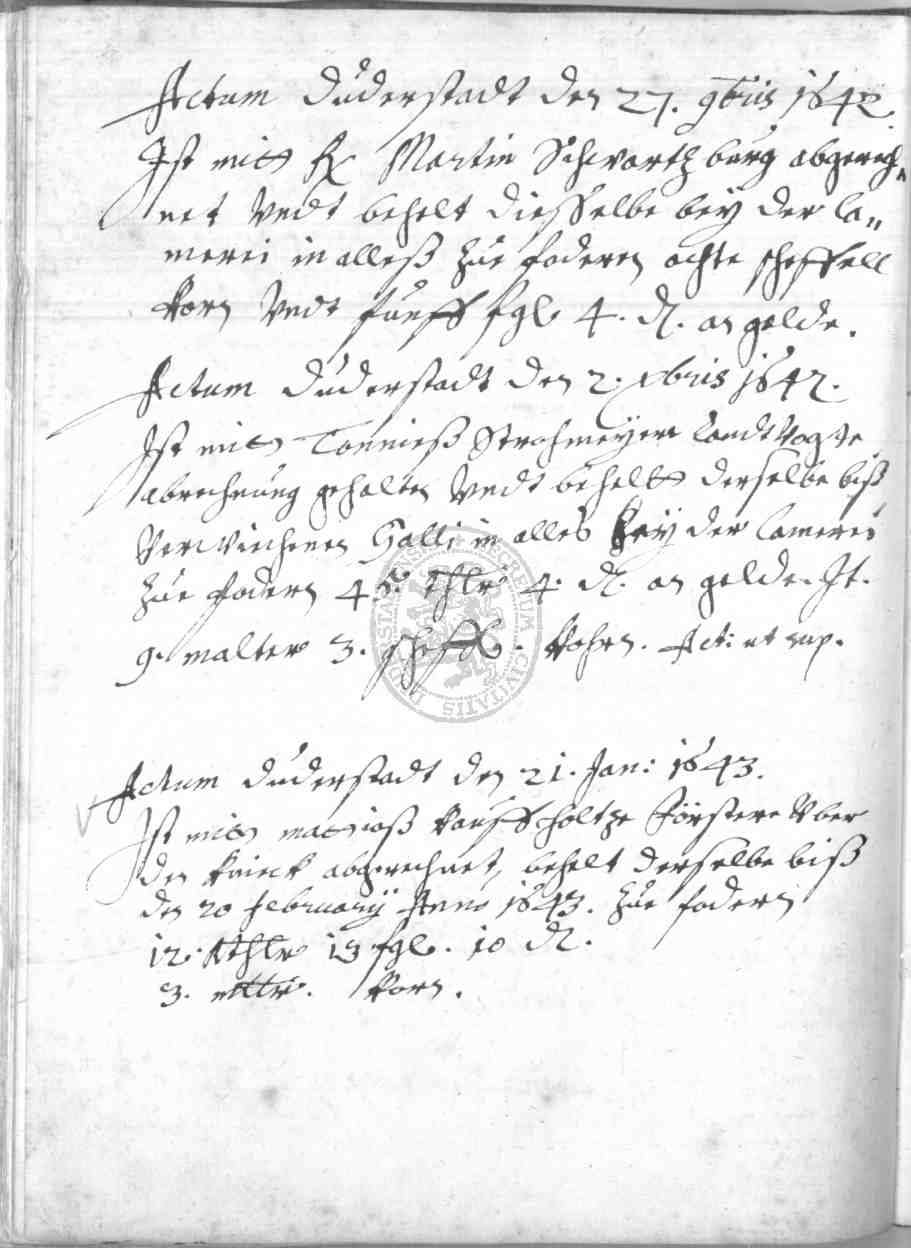 Actum Duderstadt den 27. 9bris 1642.
Ist mitt H. Martin Schwartzburg abgerech„
net Vndt behelt diesselbe bey der Ca„
merei in alleß zue foderen achte scheffell
Korn Vndt fünff fgl. 4. d. an gelde.
Actum Duderstadt den 2. Xbris 1642.
Ist mitt Tönnieß Strohmeyern Landt Vogte
abrechnung gehalten Vndt behelt derselbe biß
Verwichenen Galli in alles bey der Camerei
zue fodern 4 thlr 4. d. an gelde. It.
9. malter 3. scheffl. Kohrn. Act: ut sup.
Actum Duderstadt den 21. Jan: 1643.
Ist mitt mattiaß Kauffholtze Förstere Vber
den Knick abgerechnet, behelt derselbe biß
den 20 february Anno 1643. zue fodern
12. Rthlr 13 fgl. 10 d.
3. mltr. Korn.
SECRETUM CIVITATIS